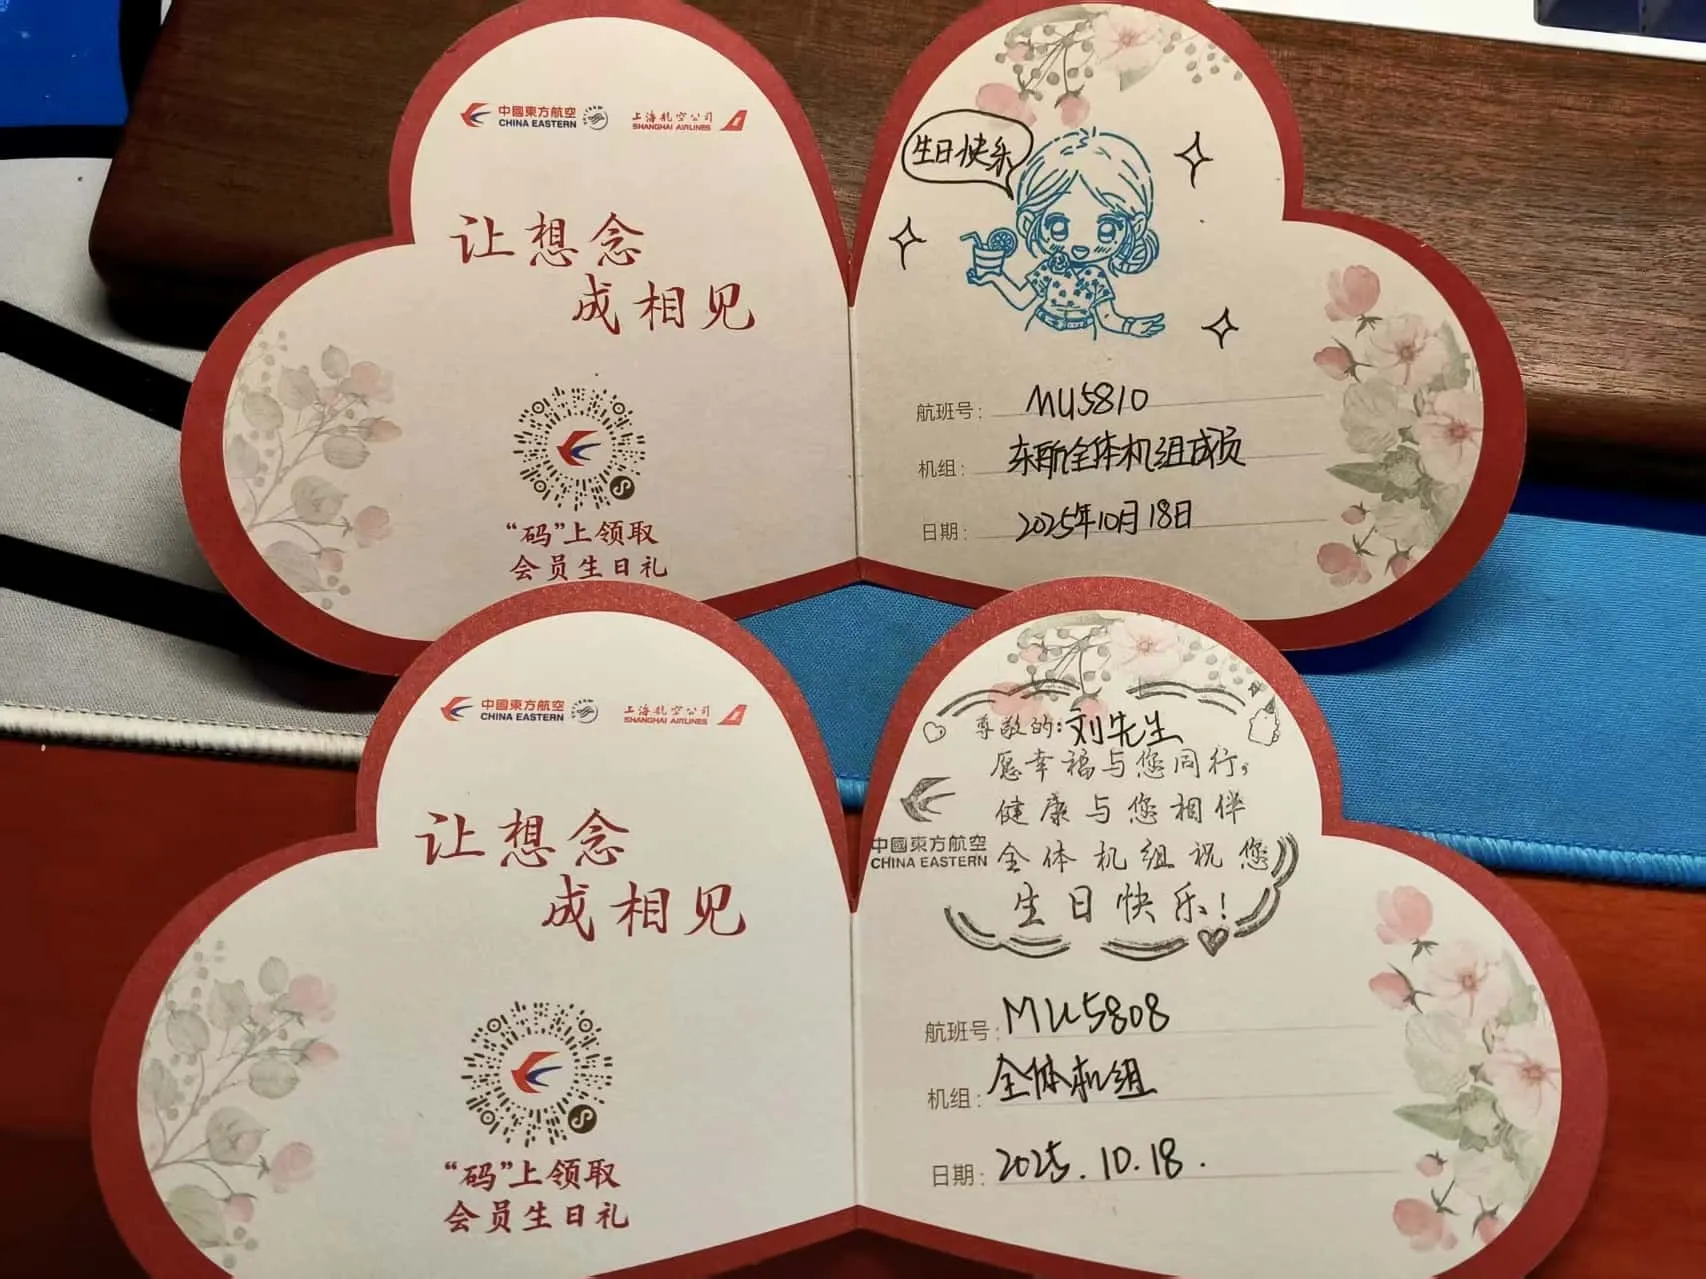 中國東方航空
CHINA EASTERN
上海航空公司
SHANGHAI AIRLINES
让想念
成相见
“码”上领取
会员生日礼
生日快乐
航班号: MU5810
机组: 东航全体机组成员
日期: 2025年10月18日
中國東方航空
CHINA EASTERN
上海航空公司
SHANGHAI AIRLINES
让想念
成相见
“码”上领取
会员生日礼
尊敬的:刘先生
愿幸福与您同行,
健康与您相伴
中國東方航空
CHINA EASTERN
全体机组祝您
生日快乐!
航班号: MU5808
机组: 全体机组
日期: 2025.10.18.